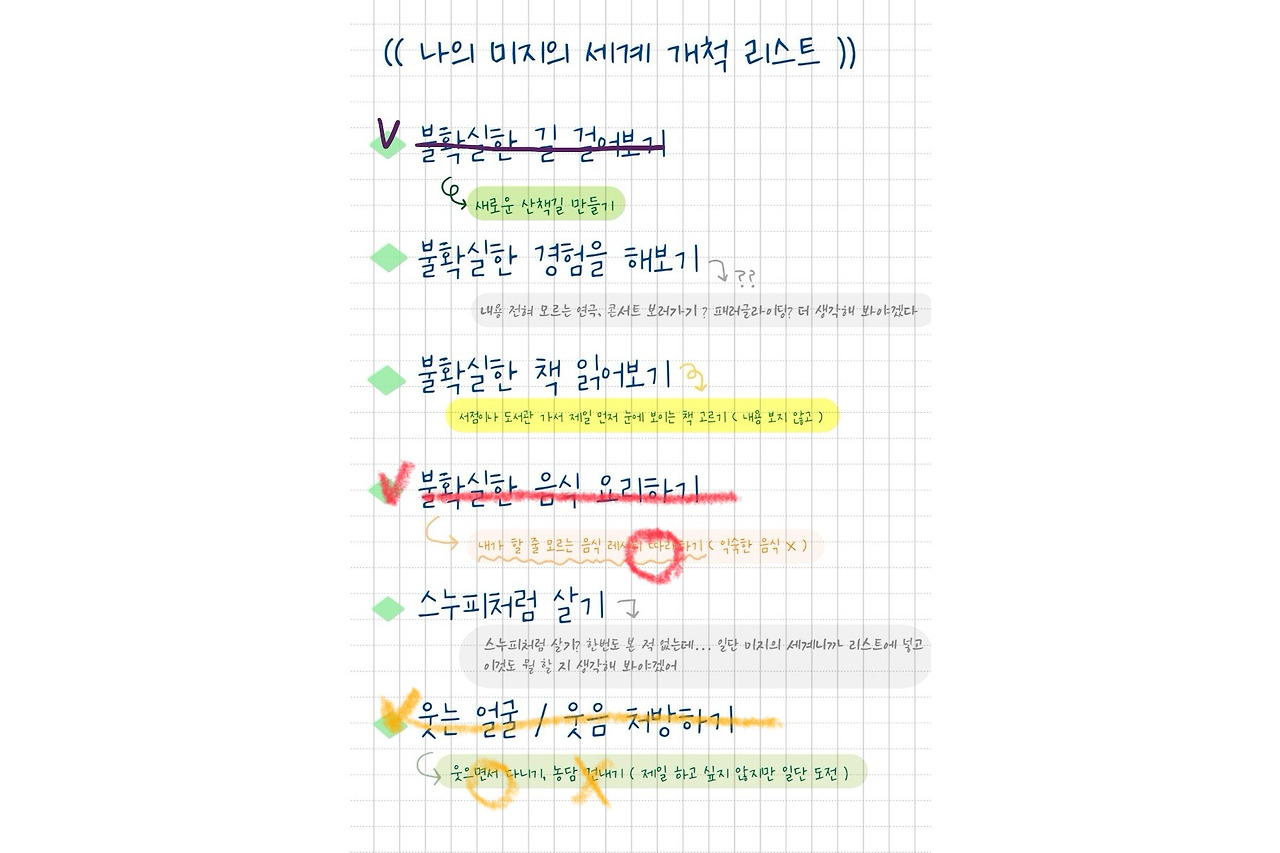 (( 나의 미지의 세계 개척 리스트 ))
V 불확실한 길 걸어보기
새로운 산책길 만들기
불확실한 경험을 해보기 ??
내용 전혀 모르는 연극, 콘서트 보러가기? 패러글라이딩? 더 생각해 봐야겠다
불확실한 책 읽어보기
서점이나 도서관 가서 제일 먼저 눈에 보이는 책 고르기 ( 내용 보지 않고 )
V 불확실한 음식 요리하기
내가 할 줄 모르는 음식 레시피 따라하기 ( 익숙한 음식 X )
스누피처럼 살기
스누피처럼 살기? 한번도 본 적 없는데... 일단 미지의 세계니까 리스트에 넣고
이것도 뭘 할 지 생각해 봐야겠어
V 웃는 얼굴 / 웃음 처방하기
웃으면서 다니기, 농담 건내기 ( 제일 하고 싶지 않지만 일단 도전 )